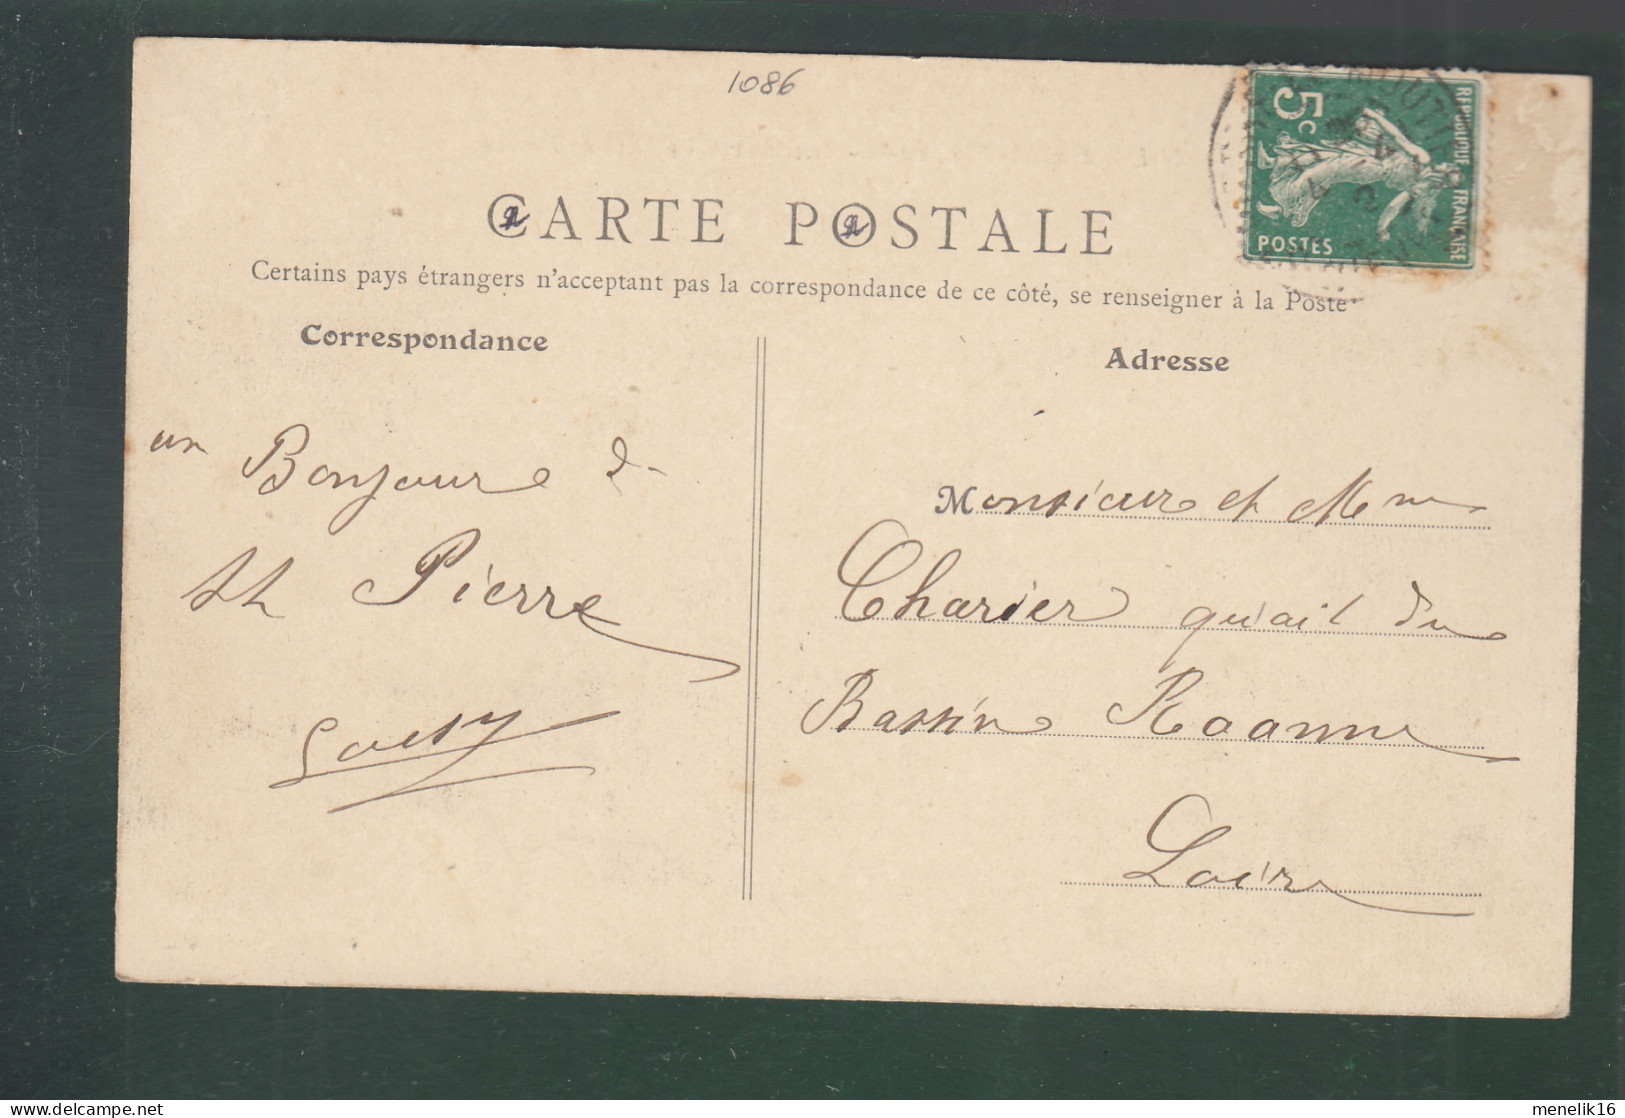 1086
CARTE POSTALE
Certains pays étrangers n'acceptant pas la correspondance de ce côté, se renseigner à la Poste
Correspondance
Adresse
5c
REPUBLIQUE FRANÇAISE
POSTES
un Bonjour d
st Pierre
Monsieur et Mm
Charier qu'ail du
Bassin Roanne
Loire
delcampe.net
menelik16